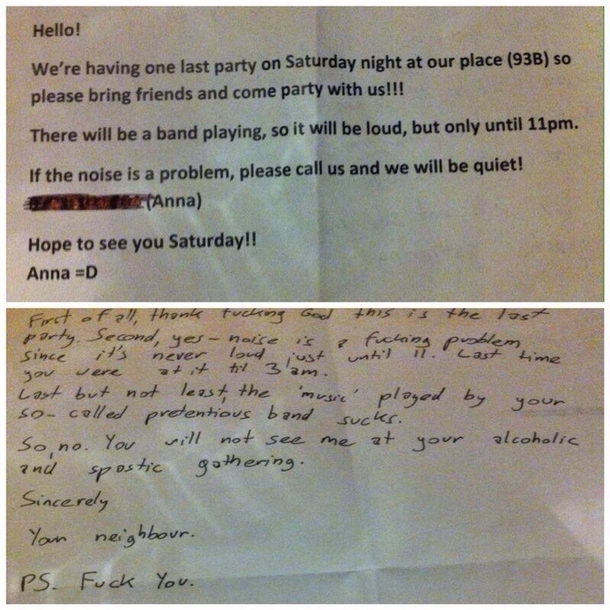 Hello!
We're having one last party on Saturday night at our place (93B) so
please bring friends and come party with us!!!
There will be a band playing, so it will be loud, but only until 11pm.
If the noise is a problem, please call us and we will be quiet!
(Anna)
Hope to see you Saturday!!
Anna =D
First of all, thank fucking God this is the last
party. Second, yes - noise is a fucking problem
since it's never loud just until 11. Last time
you were at it til 3am.
Last but not least, the 'music' played by your
so-called pretentious band sucks.
So, no. You will not see me at your alcoholic
and spastic gathering.
Sincerely
Your neighbour.
PS. Fuck You.